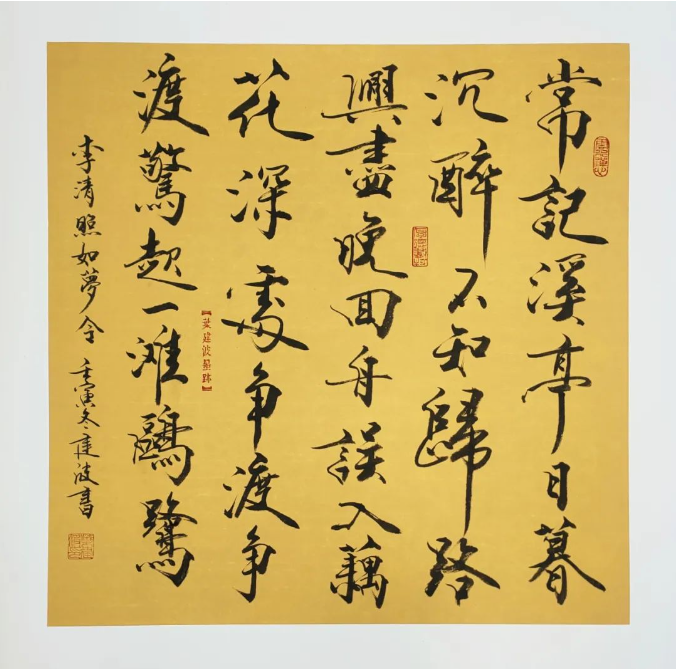 常記溪亭日暮
沉醉不知歸路
興盡晚回舟誤入藕
花深處争渡争
渡驚起一滩鷗鷺
李清照如夢令 壬寅冬建波書